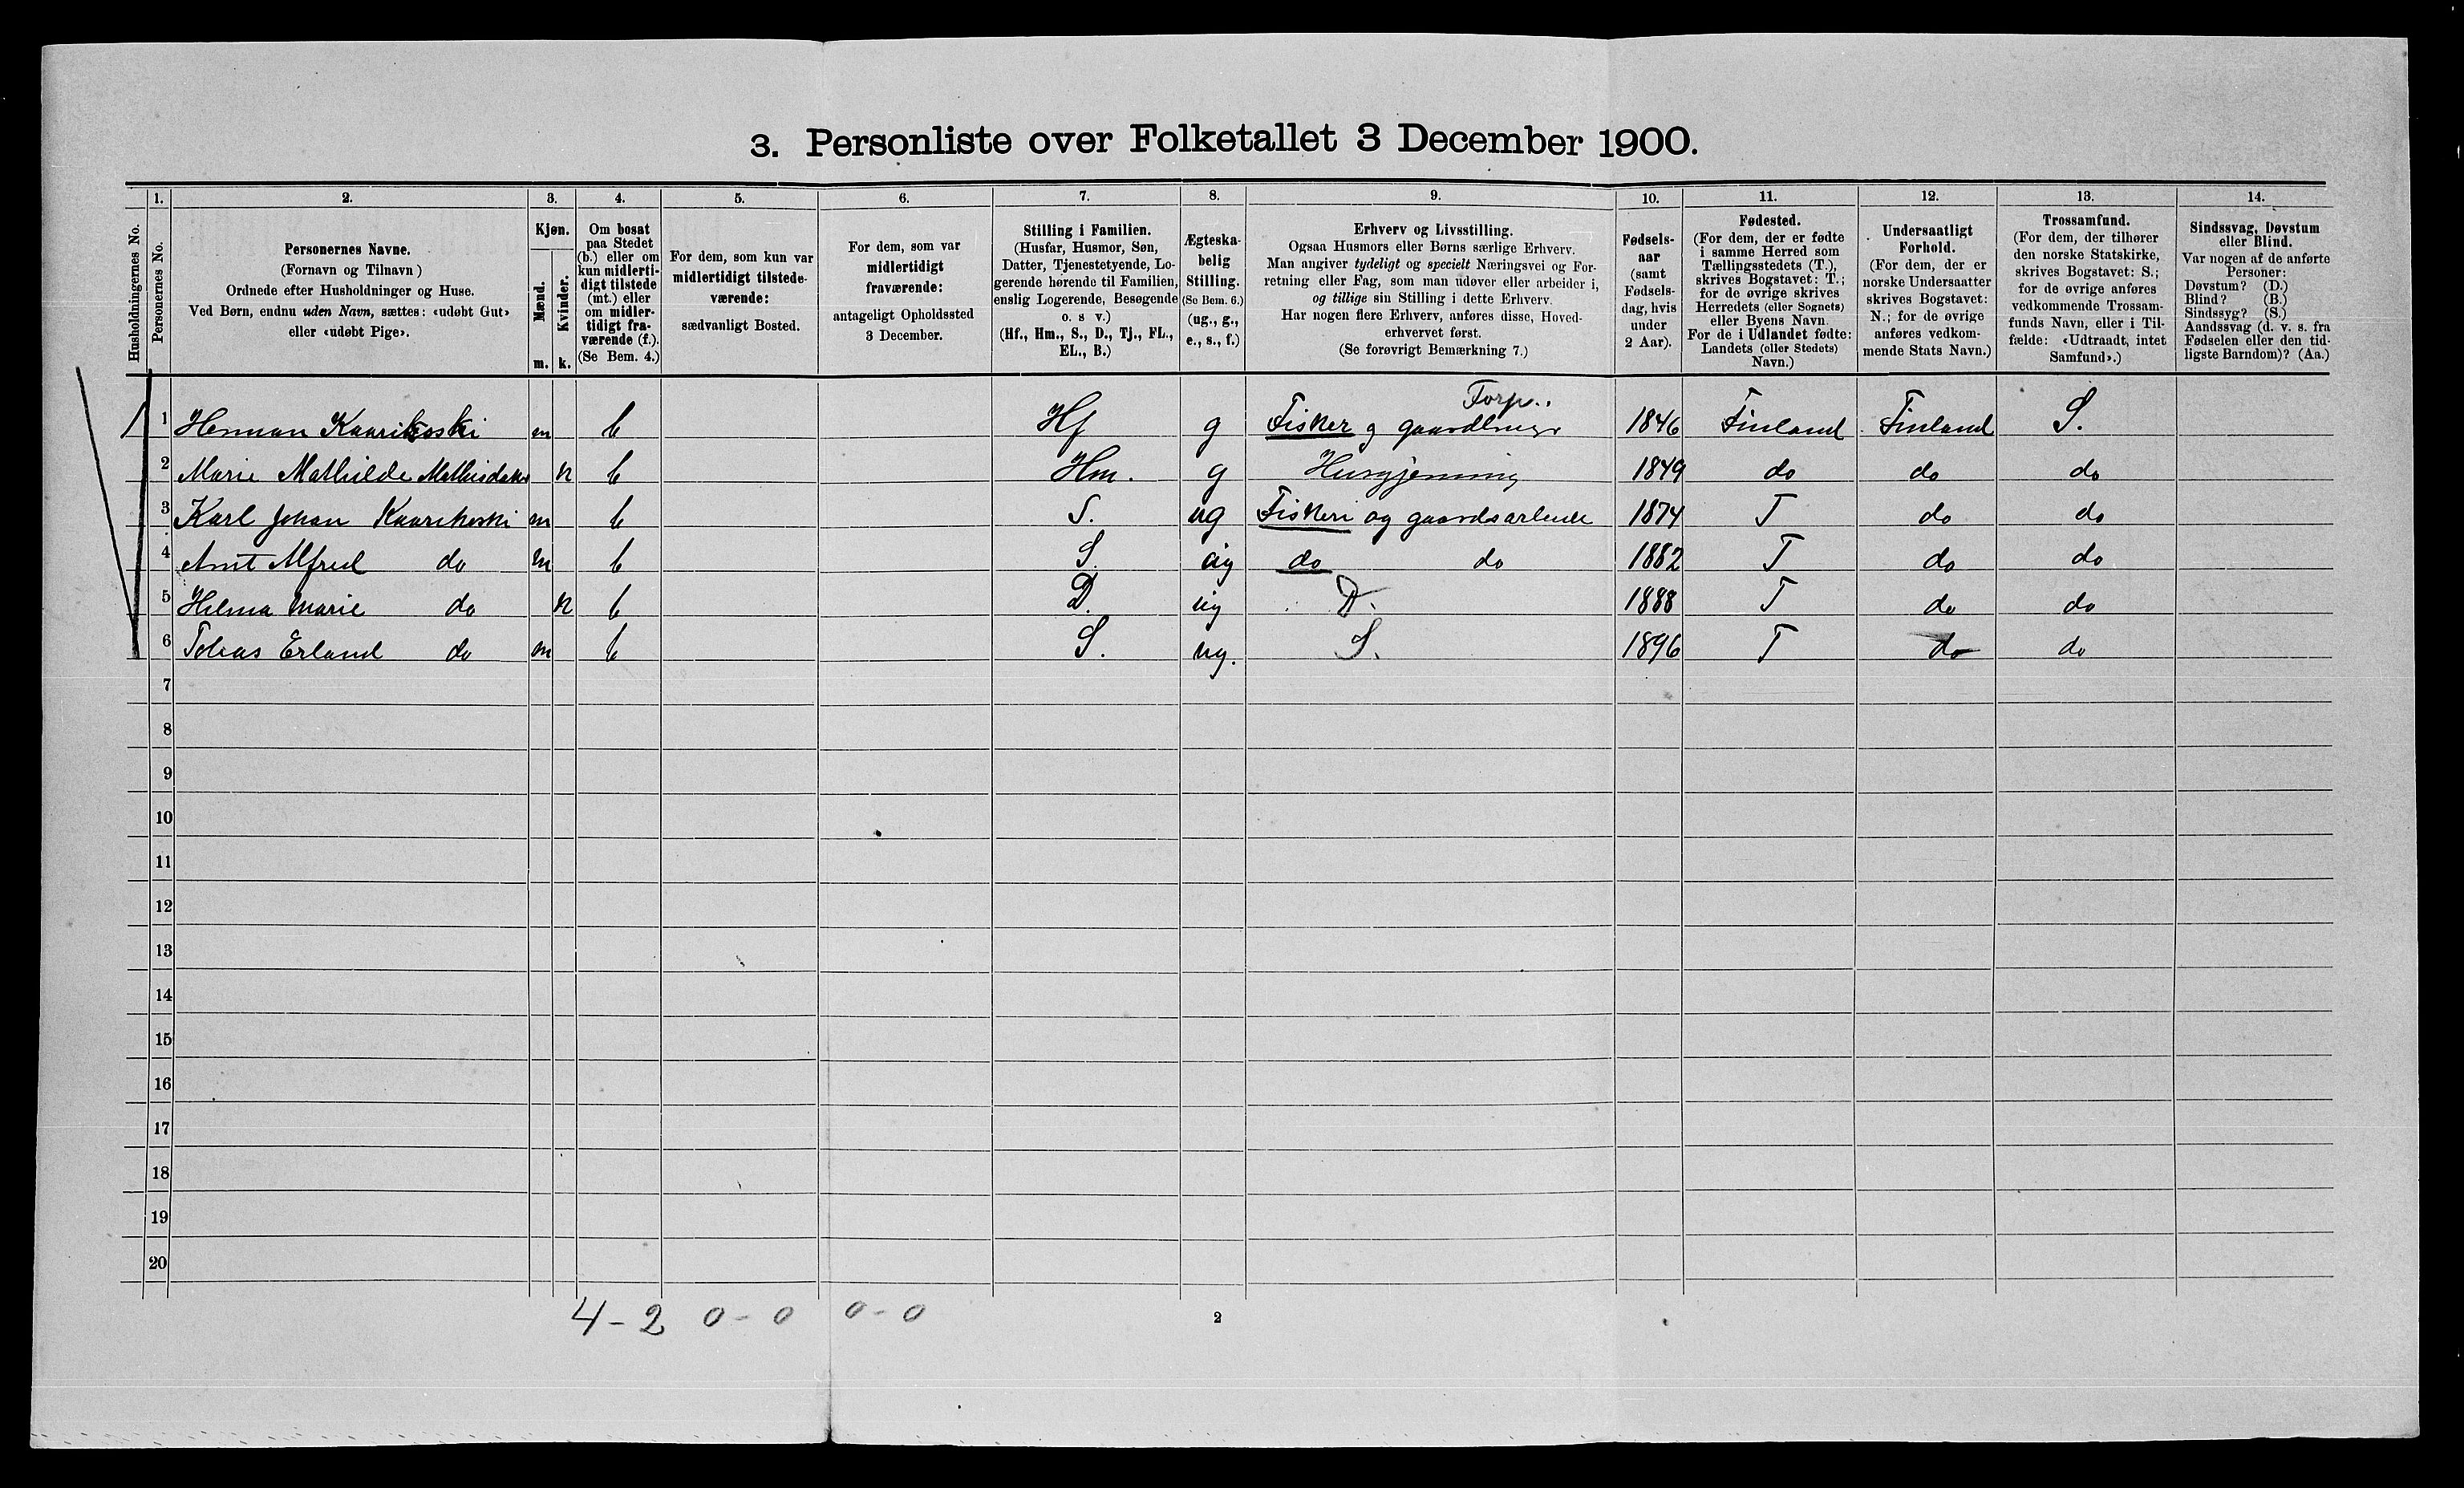 3. Personliste over Folketallet 3 December 1900.
Husholdningernes No.
1. 2. 3. 4. 5. 6. 7. 8. 9. 10. 11. 12. 13. 14.
Personernes No.
Personernes Navne.
(Fornavn og Tilnavn)
Ordnede efter Husholdninger og Huse.
Ved Børn, endnu uden Navn, sættes: «udøbt Gut»
eller «udøbt Pige».
Kjøn.
Mænd.
Kvinder.
m. k.
Om bosat
paa Stedet
(b.) eller om
kun midlerti-
digt tilstede
(mt.) eller
om midler-
tidigt fra-
værende (f.).
(Se Bem. 4.)
For dem, som kun var
midlertidigt tilstede-
værende:
sædvanligt Bosted.
For dem, som var
midlertidigt
fraværende:
antageligt Opholdssted
3 December.
Stilling i Familien.
(Husfar, Husmor, Søn,
Datter, Tjenestetyende, Lo-
gerende hørende til Familien,
enslig Logerende, Besøgende
o. s v.)
(Hf., Hm., S., D., Tj., FL.,
EL., B.)
Ægteska-
belig
Stilling.
(Se Bem. 6.)
(ug., g.,
e., s., f.)
Erhverv og Livsstilling.
Ogsaa Husmors eller Børns særlige Erhverv.
Man angiver tydeligt og specielt Næringsvei og For-
retning eller Fag, som man udøver eller arbeider i,
og tillige sin Stilling i dette Erhverv.
Har nogen flere Erhverv, anføres disse, Hoved-
erhvervet først.
(Se forøvrigt Bemærkning 7.)
Fødsels-
aar
(samt
Fødsels-
dag, hvis
under
2 Aar).
Fødested.
(For dem, der er fødte
i samme Herred som
Tællingsstedets (T.),
skrives Bogstavet: T.;
for de øvrige skrives
Herredets (eller Sognets)
eller Byens Navn.
For de i Udlandet fødte:
Landets (eller Stedets)
Navn.)
Undersaatligt
Forhold.
(For dem, der er
norske Undersaatter
skrives Bogstavet:
N.; for de øvrige
anføres vedkom-
mende Stats Navn.)
Trossamfund.
(For dem, der tilhører
den norske Statskirke,
skrives Bogstavet: S.;
for de øvrige anføres
vedkommende Trossam-
funds Navn, eller i Til-
fælde: «Udtraadt, intet
Samfund».)
Sindssvag, Døvstum
eller Blind.
Var nogen af de anførte
Personer:
Døvstum? (D.)
Blind? (B.)
Sindssyg? (S.)
Aandssvag (d. v. s. fra
Fødselen eller den tid-
ligste Barndom)? (Aa.)
Forp..
1 Herman Kaarikoski m b Hf g Fisker g gaardbruger 1846 Finland Finland S.
2 Marie Mathilde Mathisdatter k b Hm. g Husgjerning 1849 do do do
3 Karl Johan Kaarikoski m b S. ug Fiskeri og gaardsarbeide 1874 T do do
4 Arnt Alfred do m b S. ug do do 1882 T do do
5 Helma Marie do k b D. ug D. 1888 T do do
6 Tobias Erland do m b S. ug. S. 1896 T do do
7
8
9
10
11
12
13
14
15
16
17
18
19
20
4 - 2 0 - 0 0 - 0
2